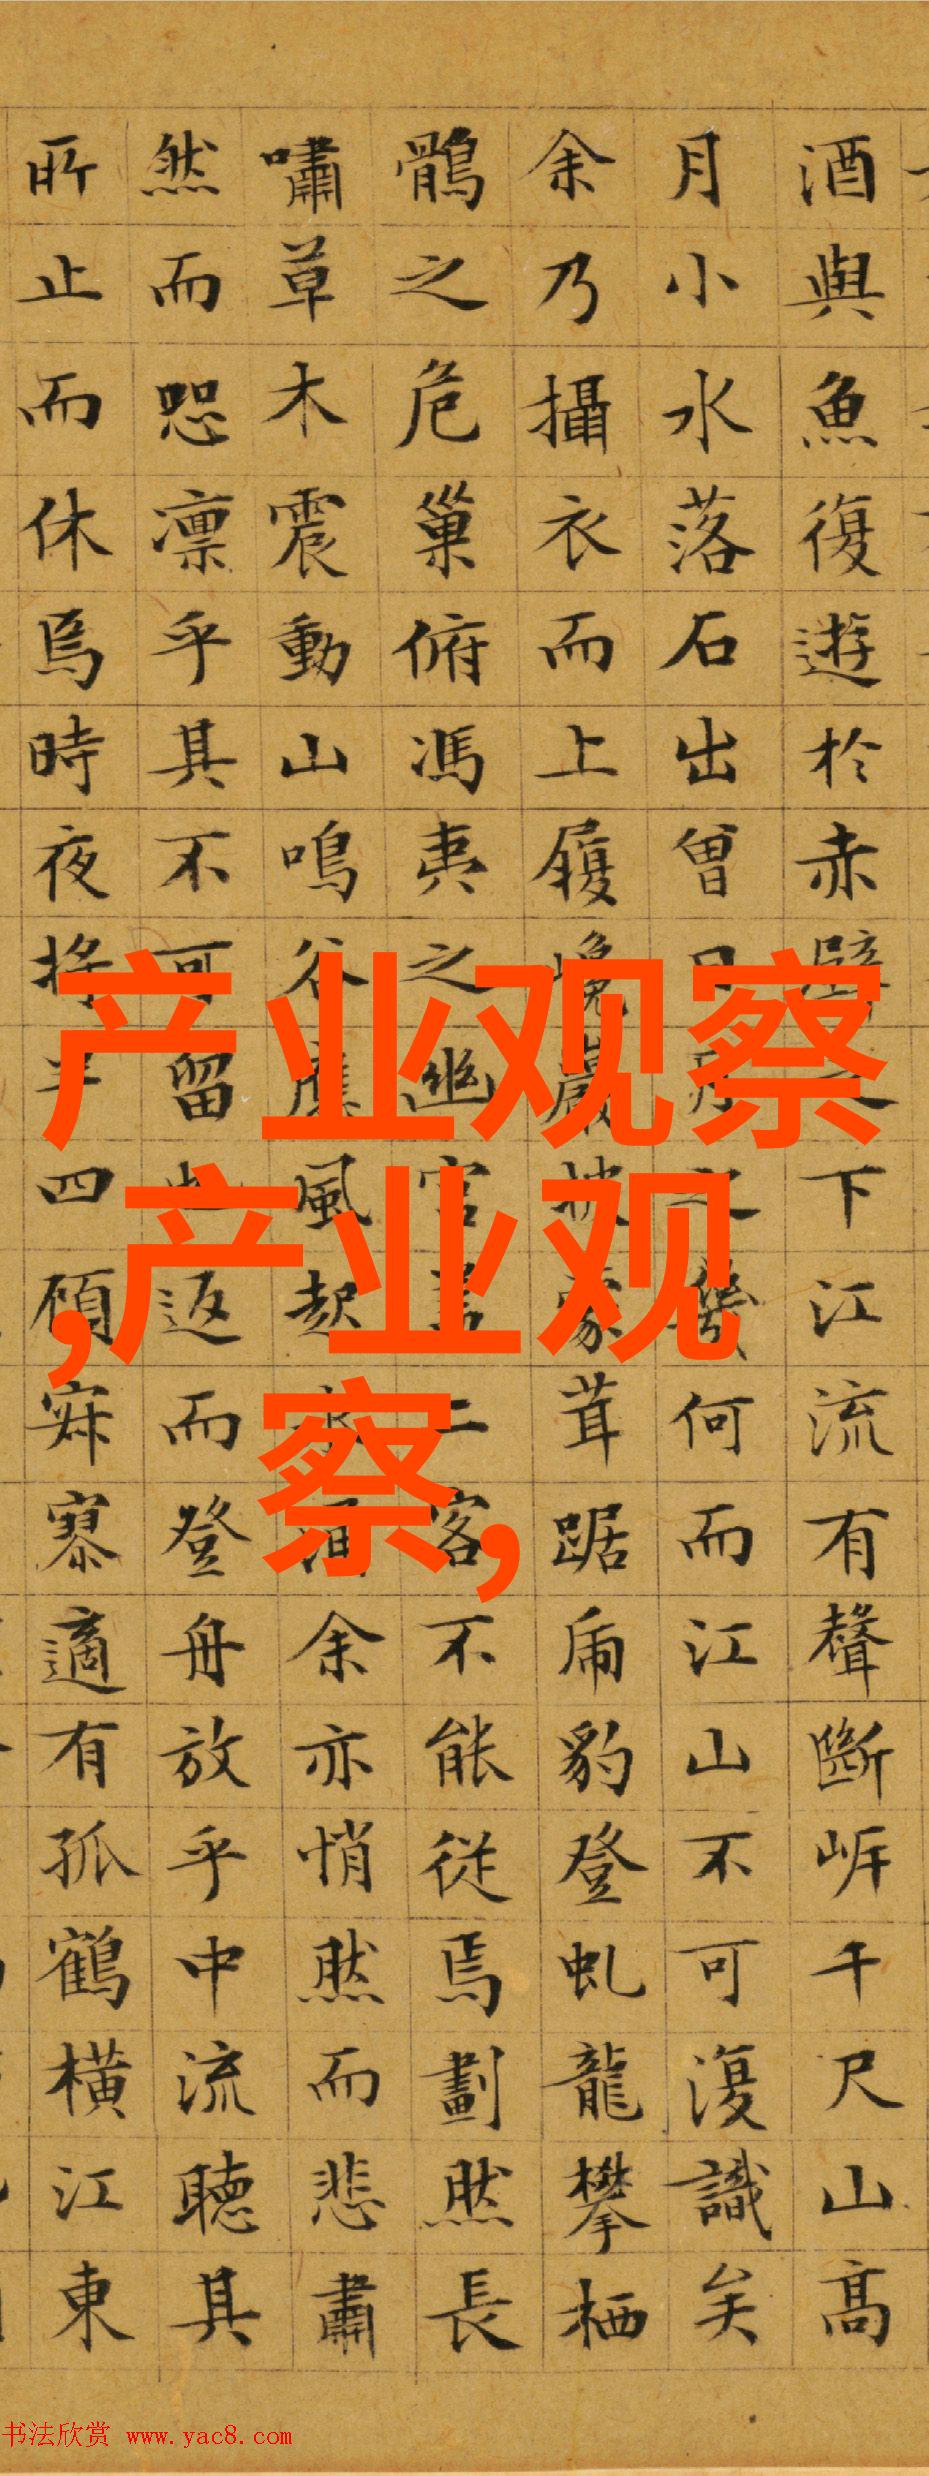 酒與魚復遊於赤壁之下江流有聲斷岸千尺山高
月小水落石出曾日月之幾何而江山不可復識矣
余乃攝衣而上履巉巖披蒙茸踞虎豹登虬龍攀栖
鶻之危巢俯馮夷之幽宮蓋二客不能從焉劃然長
嘯草木震動山鳴谷應風起水涌余亦悄然而悲肅
然而恐凜乎其不可留也返而登舟放乎中流聽其
所止而休焉時夜將半四顧寂寥適有孤鶴橫江東
产业观察
,产业观
察,
书法欣赏 www.yac8.com